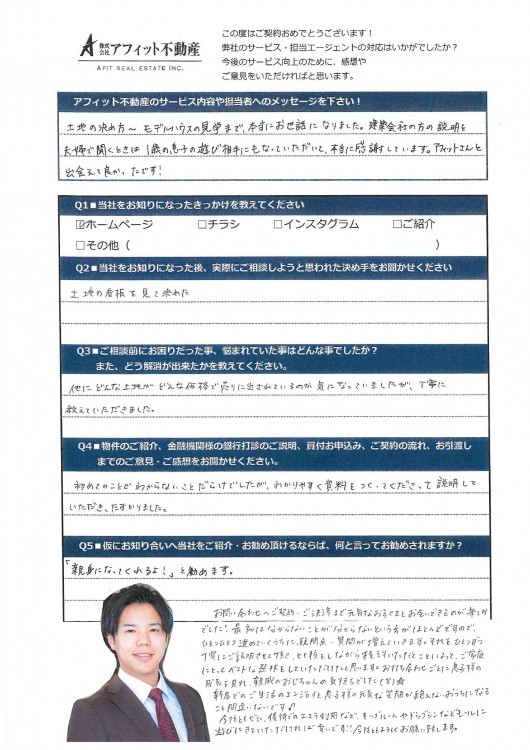 株式会社 アフィット不動産
AFIT REAL ESTATE INC.
この度はご契約おめでとうございます！
弊社のサービス・担当エージェントの対応はいかがでしたか？
今後のサービス向上のために、感想や
ご意見をいただければと思います。
アフィット不動産のサービス内容や担当者へのメッセージを下さい！
土地の決め方〜モデルハウスの見学まで、本当にお世話になりました。建築会社の方の説明を
夫婦で聞くときは1歳の息子の遊び相手にもなっていただいて、本当に感謝しています。アフィットさんと
出会えて良かったです！
Q1■当社をお知りになったきっかけを教えてください
☑ホームページ □チラシ □インスタグラム □ご紹介
□その他（ ）
Q2■当社をお知りになった後、実際にご相談しようと思われた決め手をお聞かせください
土地の看板を見て決めた
Q3■ご相談前にお困りだった事、悩まれていた事はどんな事でしたか？
また、どう解消が出来たかを教えてください。
他にどんな土地がどんな価格で売りに出されているのか気になっていましたが、丁寧に
教えていただきました。
Q4■物件のご紹介、金融機関様の銀行打診のご説明、買付お申込み、ご契約の流れ、お引渡し
までのご意見・ご感想をお聞かせください。
初めてのことでわからないことだらけでしたが、わかりやすく資料をつくってくださって説明して
いただき、たすかりました。
Q5■仮にお知り合いへ当社をご紹介・お勧め頂けるならば、何と言ってお勧めされますか？
「親身になってくれるよ！」と勧めます。
お問い合わせ〜ご契約・ご決済まで元気なお子さまとお会いできるのが楽しみ
でした！最初は分からないことが分からないという方がほとんどですので、
ひとつひとつ進めていくうちに、疑問点・質問が増えていきます。それをひとつずつ
丁寧にご説明させて頂き、
とってベストな選択をしていただけたと思います。お打ち合わせごとに息子様の
成長を見れ、親戚のおじちゃんの気持ちでした(笑)
新居でのご生活のエンジョイと息子様の元気な笑顔が絶えないおうちになる
こと間違いないです♪
遊びにきていただければ幸いです!!今後ともよろしくお願い致します。